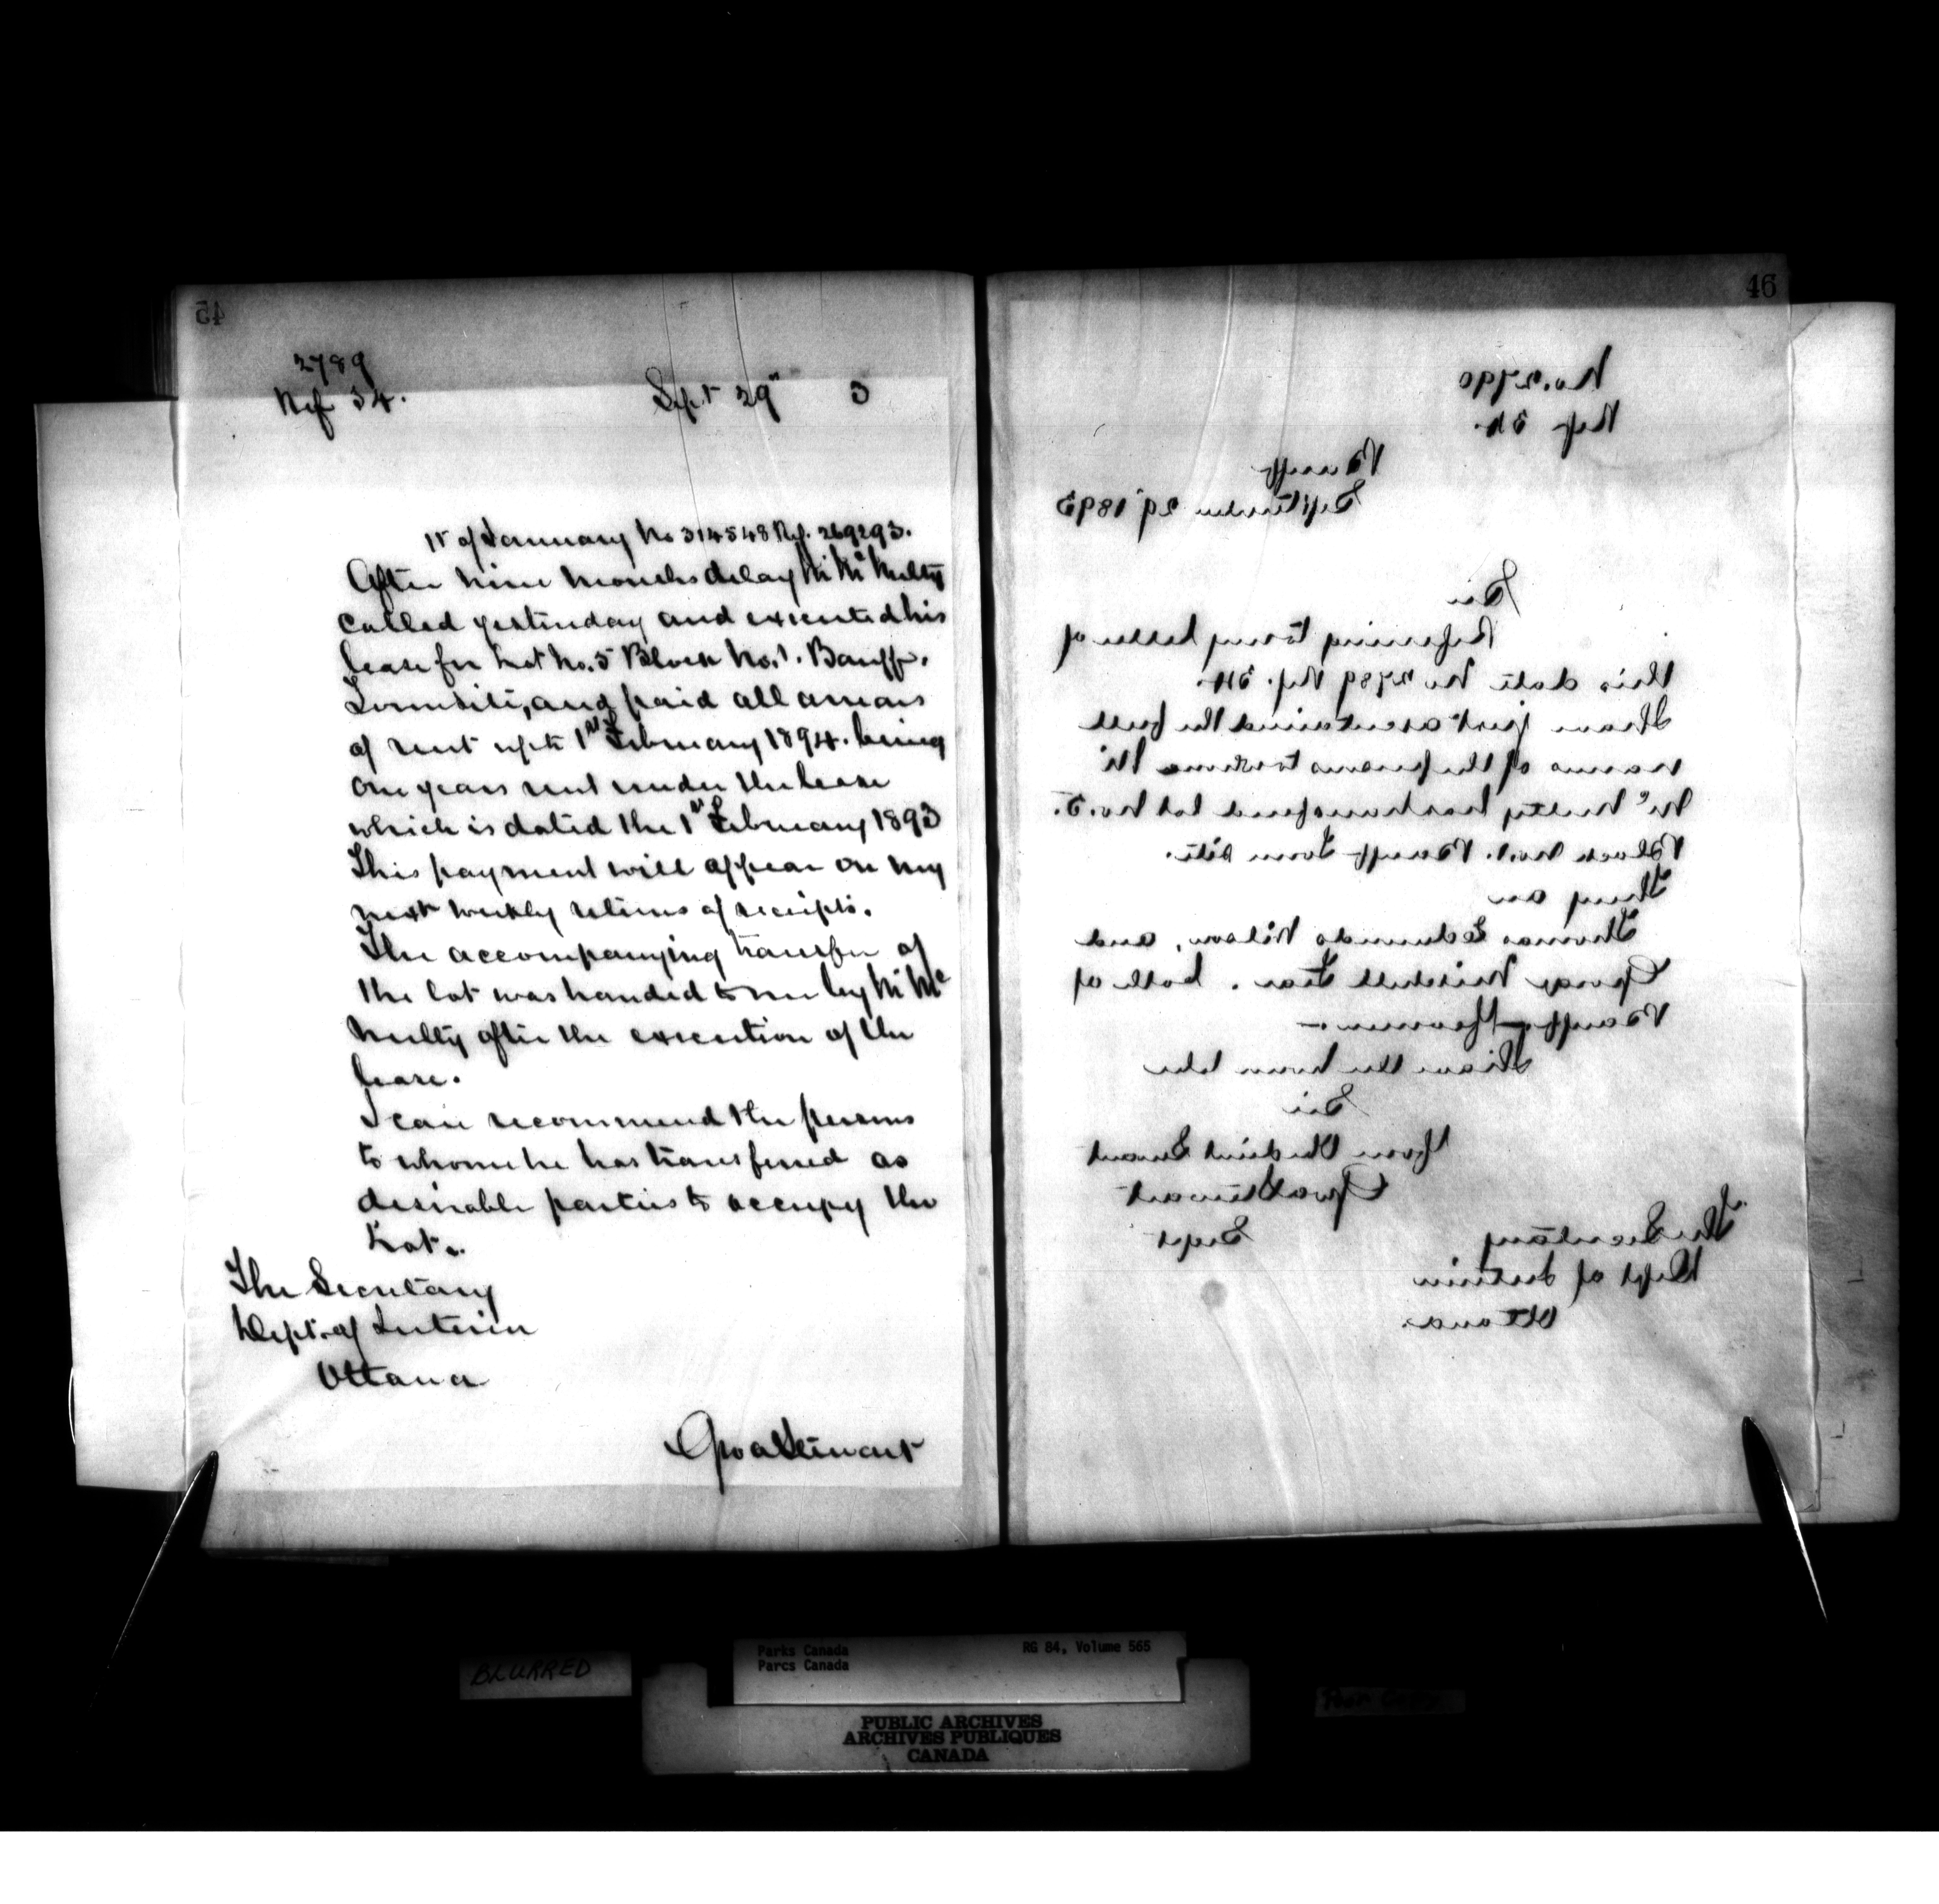 45
2789
Ref 34. Sept 29" 3
1st of January No 314548 Ref. 269293.
After nine months delay Mr Mc Nulty
called yesterday and executed his
lease for Lot No. 5 Block No. 1. Banff.
Townsite, and paid all arrears
of rent up to 1st February 1894. being
one years rent under the lease
which is dated the 1st February 1893
This payment will appear on my
next weekly returns of receipts.
The accompanying transfer of
the lot was handed to me by Mr Mc
Nulty after the execution of the
lease.
I can recommend the persons
to whome he has transferred as
desirable parties to occupy the
Lot.
The Secretary
Dept. of Interior
Ottawa
Geo A Stewart
46
No. 2790
Ref 34.
Banff
September 29" 1893
Sir
Referring to my letter of
this date No 2789 Ref. 34.
I have just ascertained the full
names of the persons to whome Mr
Mc Nulty has transferred lot No. 5.
Block No. 1. Banff Town Site.
They are
Thomas Edmunds Wilson, and
George Mitchell Fear. both of
Banff
I have the honor to be
Sir
Your Obedient Servant
Geo A Stewart
Supt
The Secretary
Dept of Interior
Ottawa.
BLURRED
Parks Canada RG 84, Volume 565
Parcs Canada
Poor Copy
PUBLIC ARCHIVES
ARCHIVES PUBLIQUES
CANADA